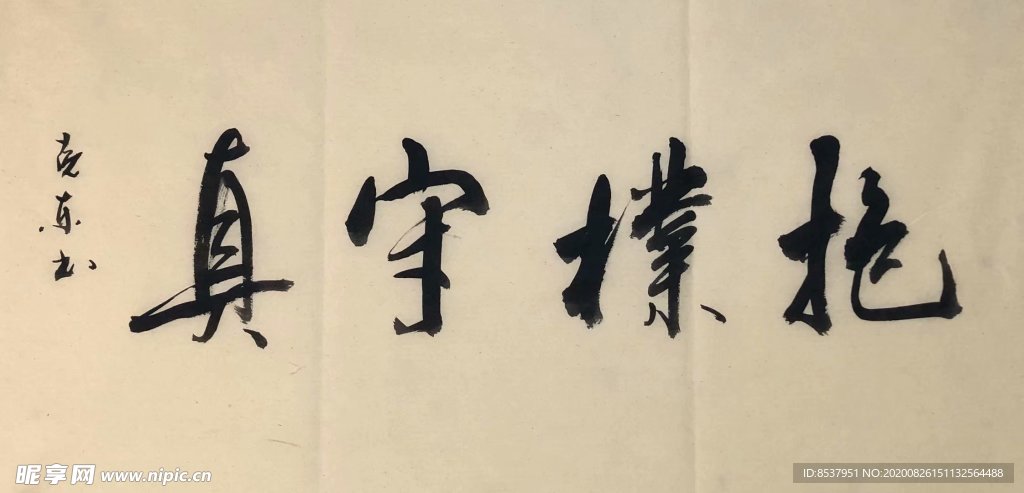 抱樸守真
克东书
昵享网 www.nipic.cn
ID:8537951 NO:20200826151132564488